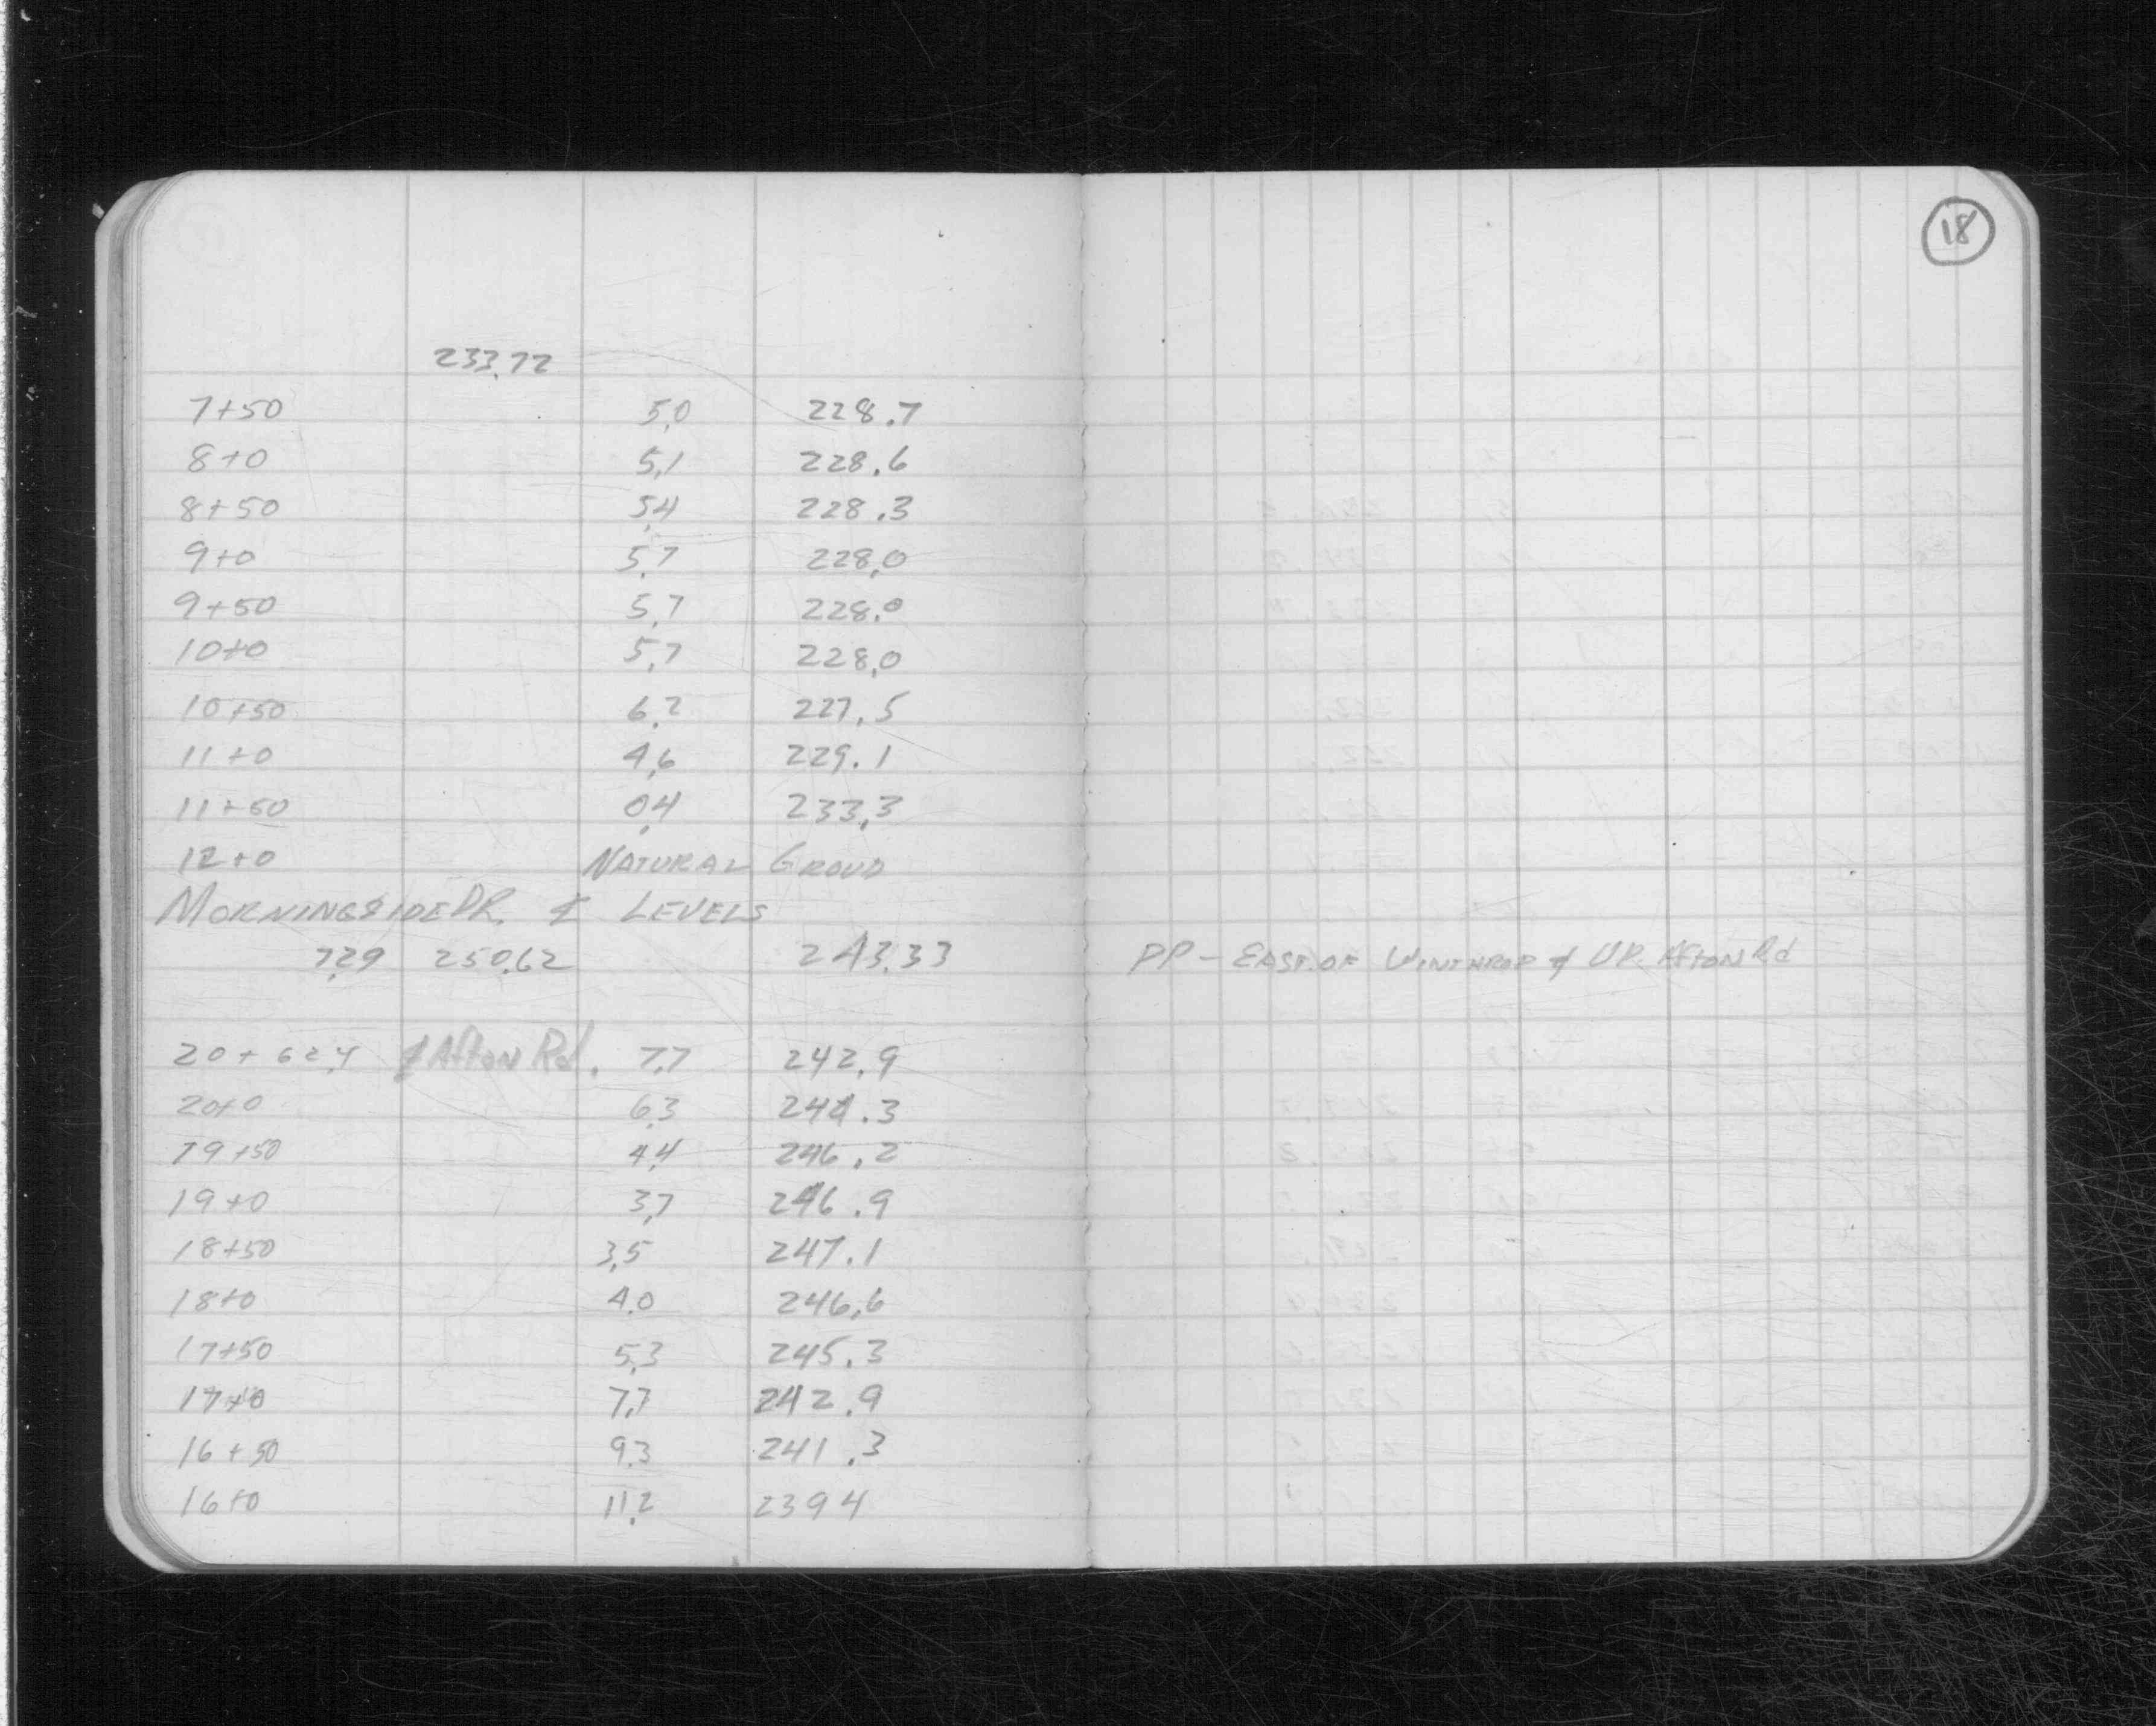 18
233.72
7+50 5.0 228.7
8+0 5.1 228.6
8+50 5.4 228.3
9+0 5.7 228.0
9+50 5.7 228.0
10+0 5.7 228.0
10+50 6.2 227.5
11+0 4.6 229.1
11+50 0.4 233.3
12+0 NATURAL GROUD
MORNINGSIDE DR. ℄ LEVELS
7.29 250.62 243.33 PP - EAST. OF WINTHROP & UP. AFTON Rd
20+62.4 ℄ Afton Rd. 7.7 242.9
20+0 6.3 244.3
19+50 4.4 246.2
19+0 3.7 246.9
18+50 3.5 247.1
18+0 4.0 246.6
17+50 5.3 245.3
17+0 7.7 242.9
16+50 9.3 241.3
16+0 11.2 239 4